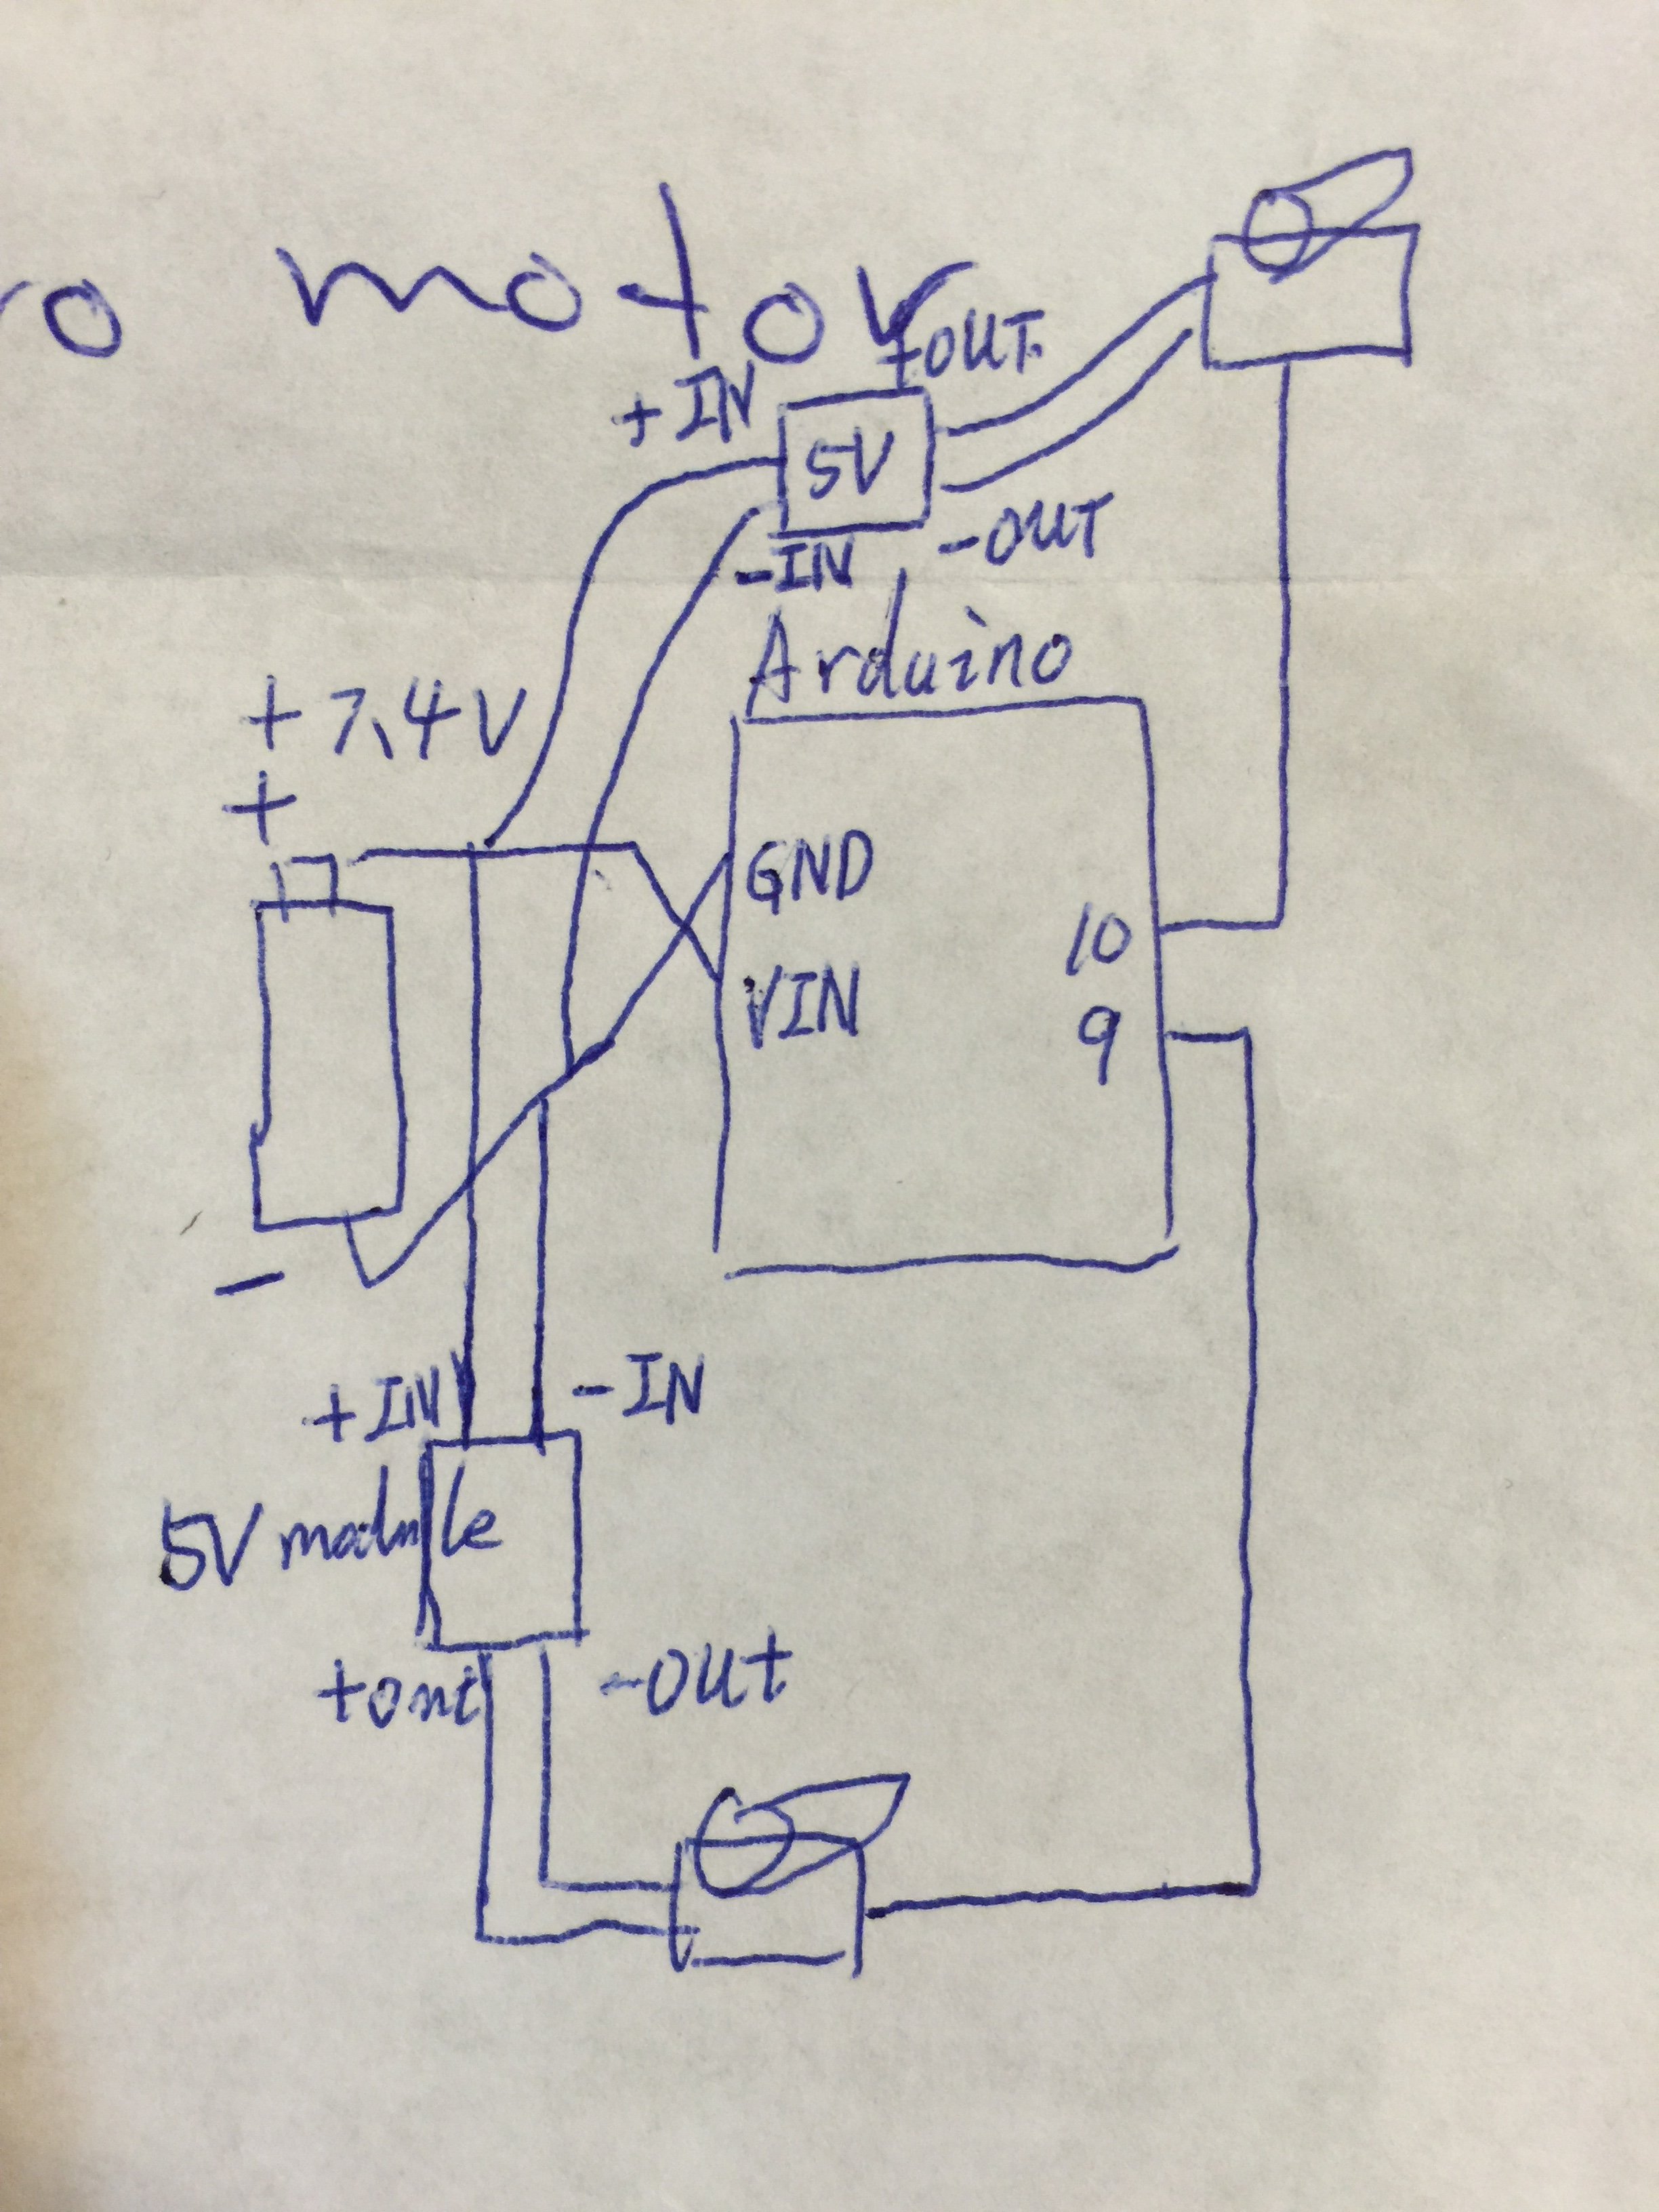 ro motor
+OUT
+IN
5V
-IN
-OUT
Arduino
+ 7.4V
+
GND
10
VIN
9
-
+IN
-IN
5V module
+out
-out